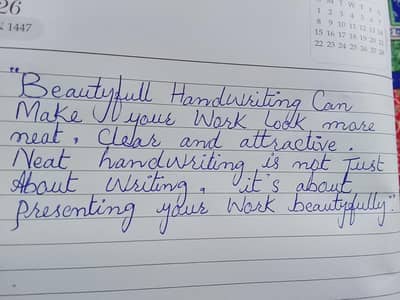 26
1447
M T W T F S
1 2 3 4 5 6 7
8 9 10 11 12 13 14
15 16 17 18 19 20 21
22 23 24 25 26 27 28
"Beautyfull Handwriting Can
Make your Work Look more
neat, Clear and attractive.
Neat handwriting is not Just
About Writing, it's about
presenting your Work beautyfully".